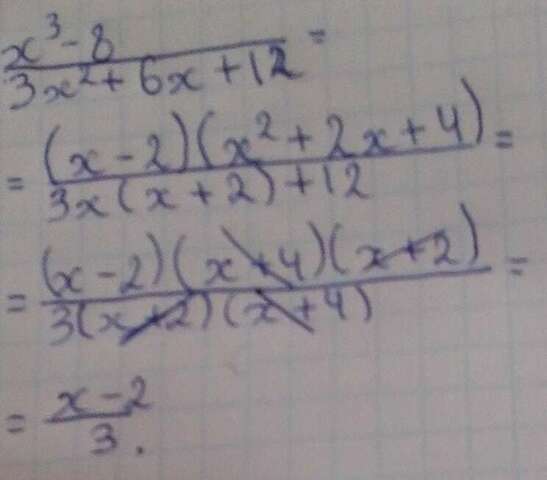 x³-8
3x²+6x+12 =
= (x-2)(x²+2x+4) =
3x(x+2)+12
= (x-2)(x+4)(x+2) =
3(x+2)(x+4)
= x-2
3.